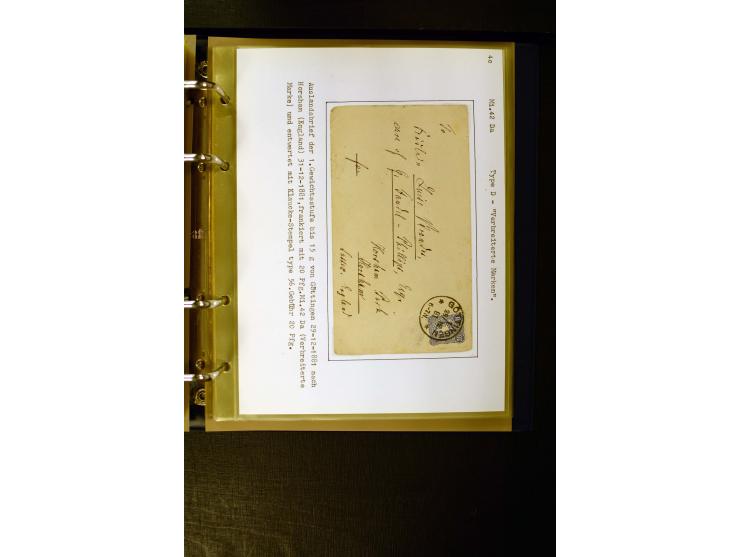 4c
Mi.42 Da Type D - "Verbreiterte Marken".
To
Fräulein Luise
care of G. Faudel-Phillips, Esq.
Horsham Park
for Horsham
Sussex. England
GÖTTINGEN
Auslandsbrief der 1.Gewichtsstufe bis 15 g von Göttingen 29-12-1881 nach
Horsham (England) 31-12-1881,frankiert mit 20 Pfg.Mi.42 Da (Verbreiterte
Marke) und entwertet mit Klaucke-Stempel type 56.Gebühr 20 Pfg.